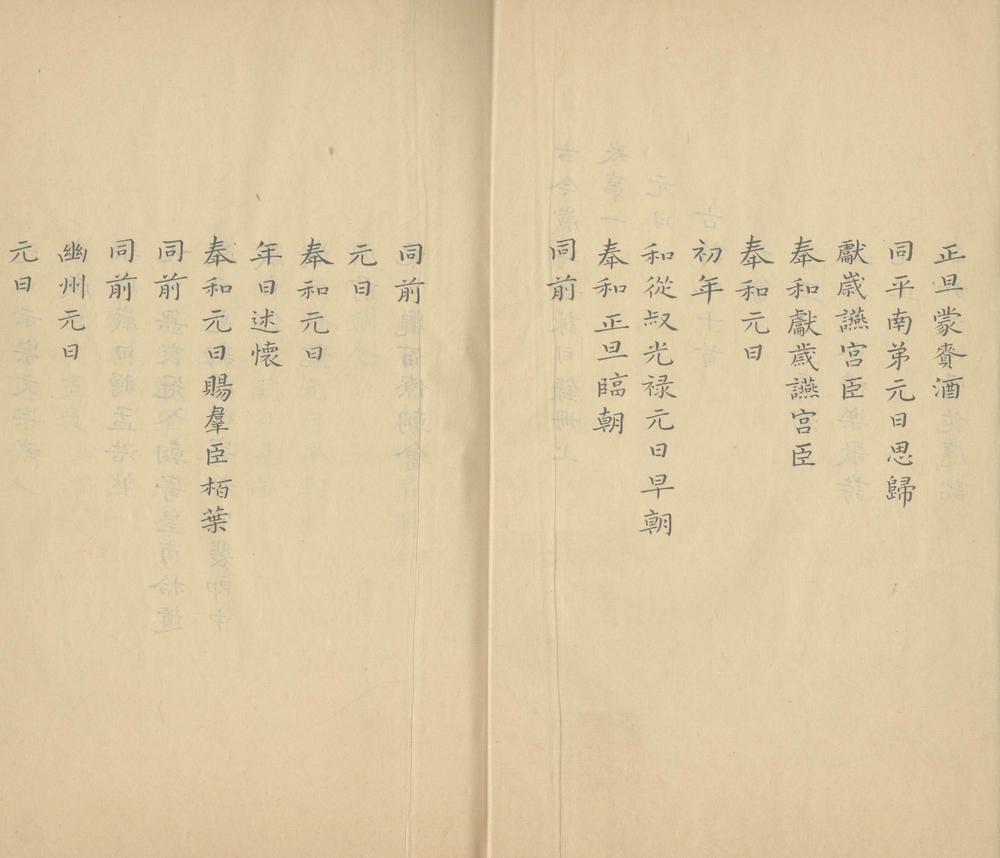 正旦蒙賚酒
同平南弟元日思歸
獻歲讌宮臣
奉和獻歲讌宮臣
奉和元日
初年
和從叔光禄元日早朝
奉和正旦臨朝
同前
同前
元日
奉和元日
年日述懷
奉和元日賜羣臣栢葉
同前
同前
幽州元日
元日